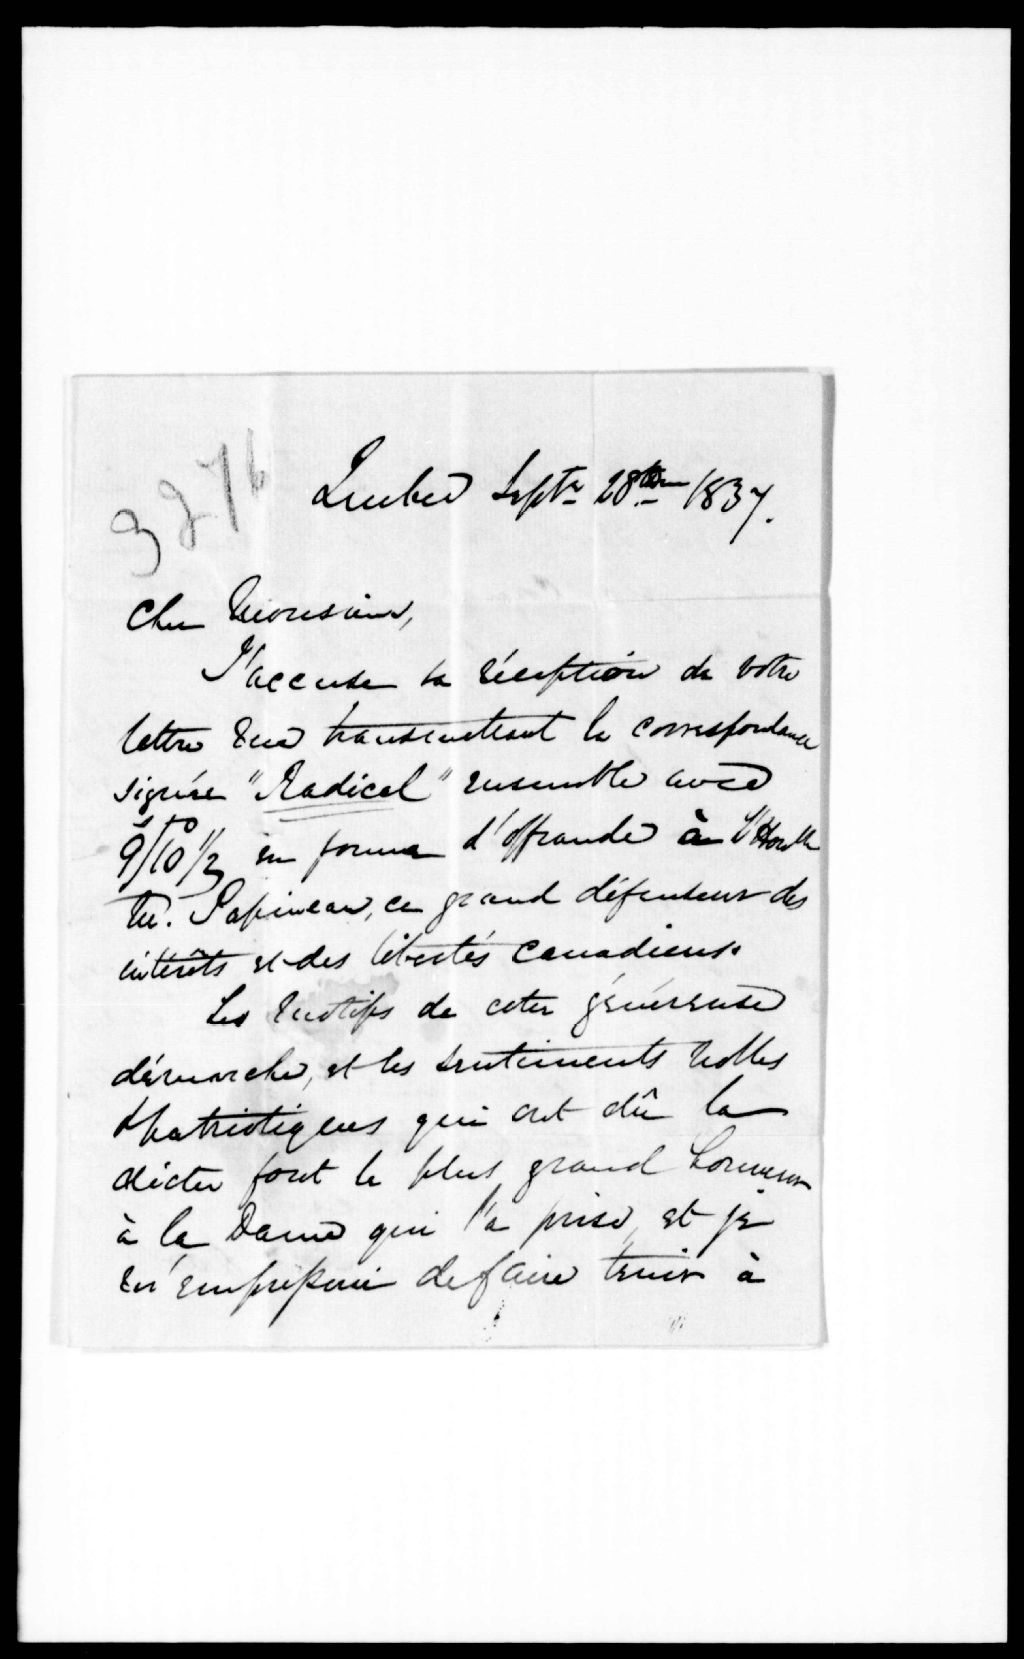 3276
Quebec Septr 28ème 1837.
Cher Monsieur,
J'accuse la réception de votre
lettre me transmettant la correspondance
signée "Radical" ensemble avec
9s/10½ en forme d'offrande à l'Honble
M. Papineau, ce grand défenseur des
intérêts et des libertés canadiens.
Les motifs de cette généreuse
démarche, et les sentiments nobles
& patriotiques qui ont dû la
dicter font le plus grand honneur
à la Dame qui l'a prise, et je
m'empresserai de faire tenir à